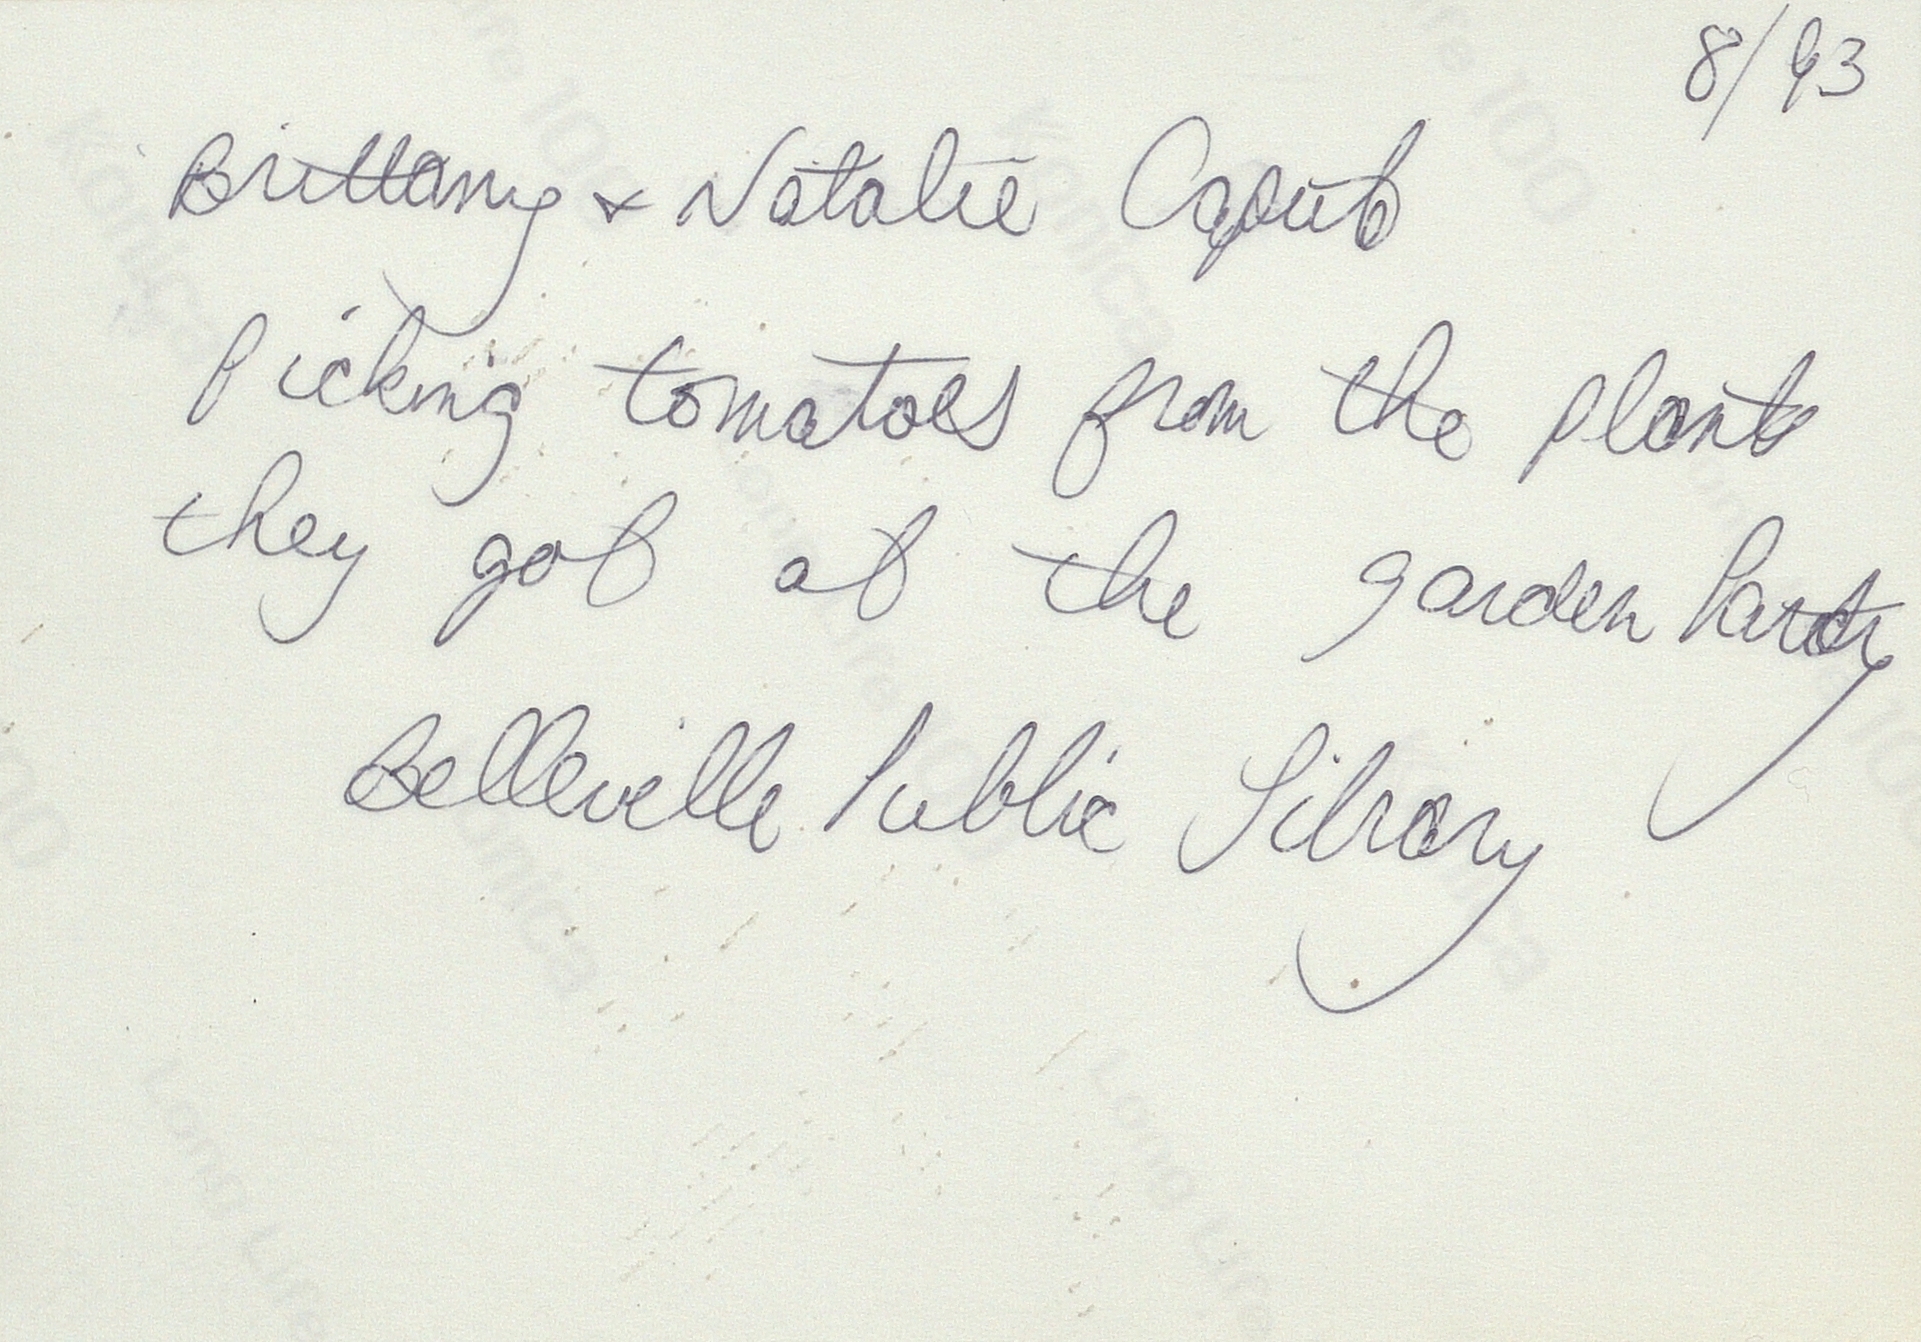 8/93
Brittany & Natalie Caputo
Picking tomatoes from the plants
they got at the garden Party
Belleville Public Library
Konica
Long Life 100